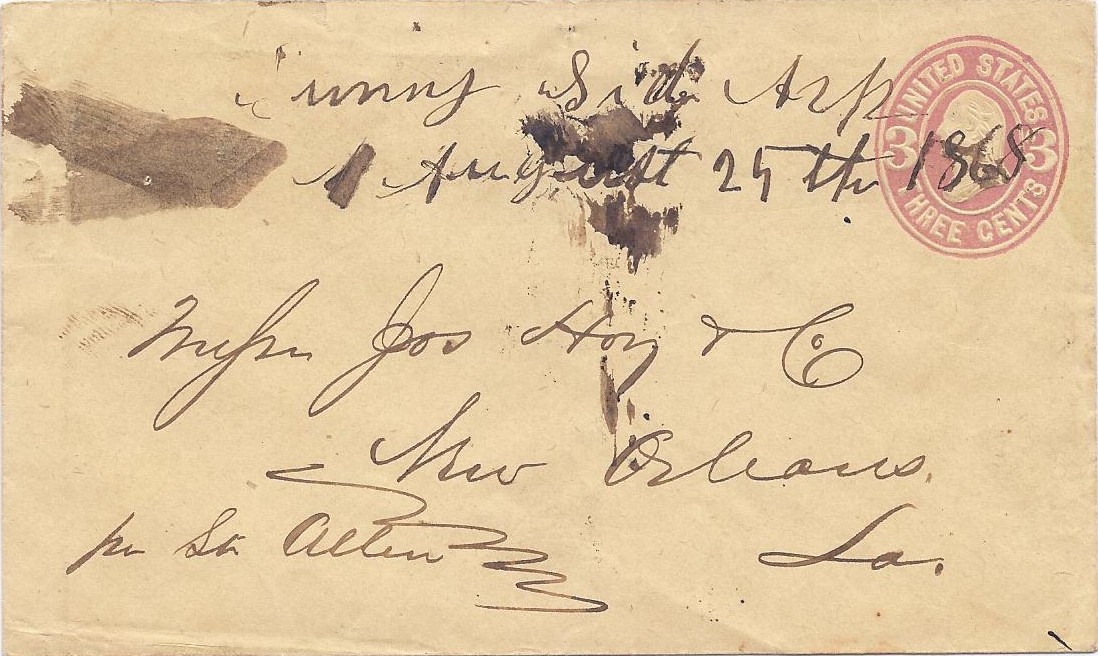 Sunny Side Ark
August 25th 1868
UNITED STATES
3 3
THREE CENTS
Messrs Jos Hoy & Co
New Orleans.
La.
per Str Allen